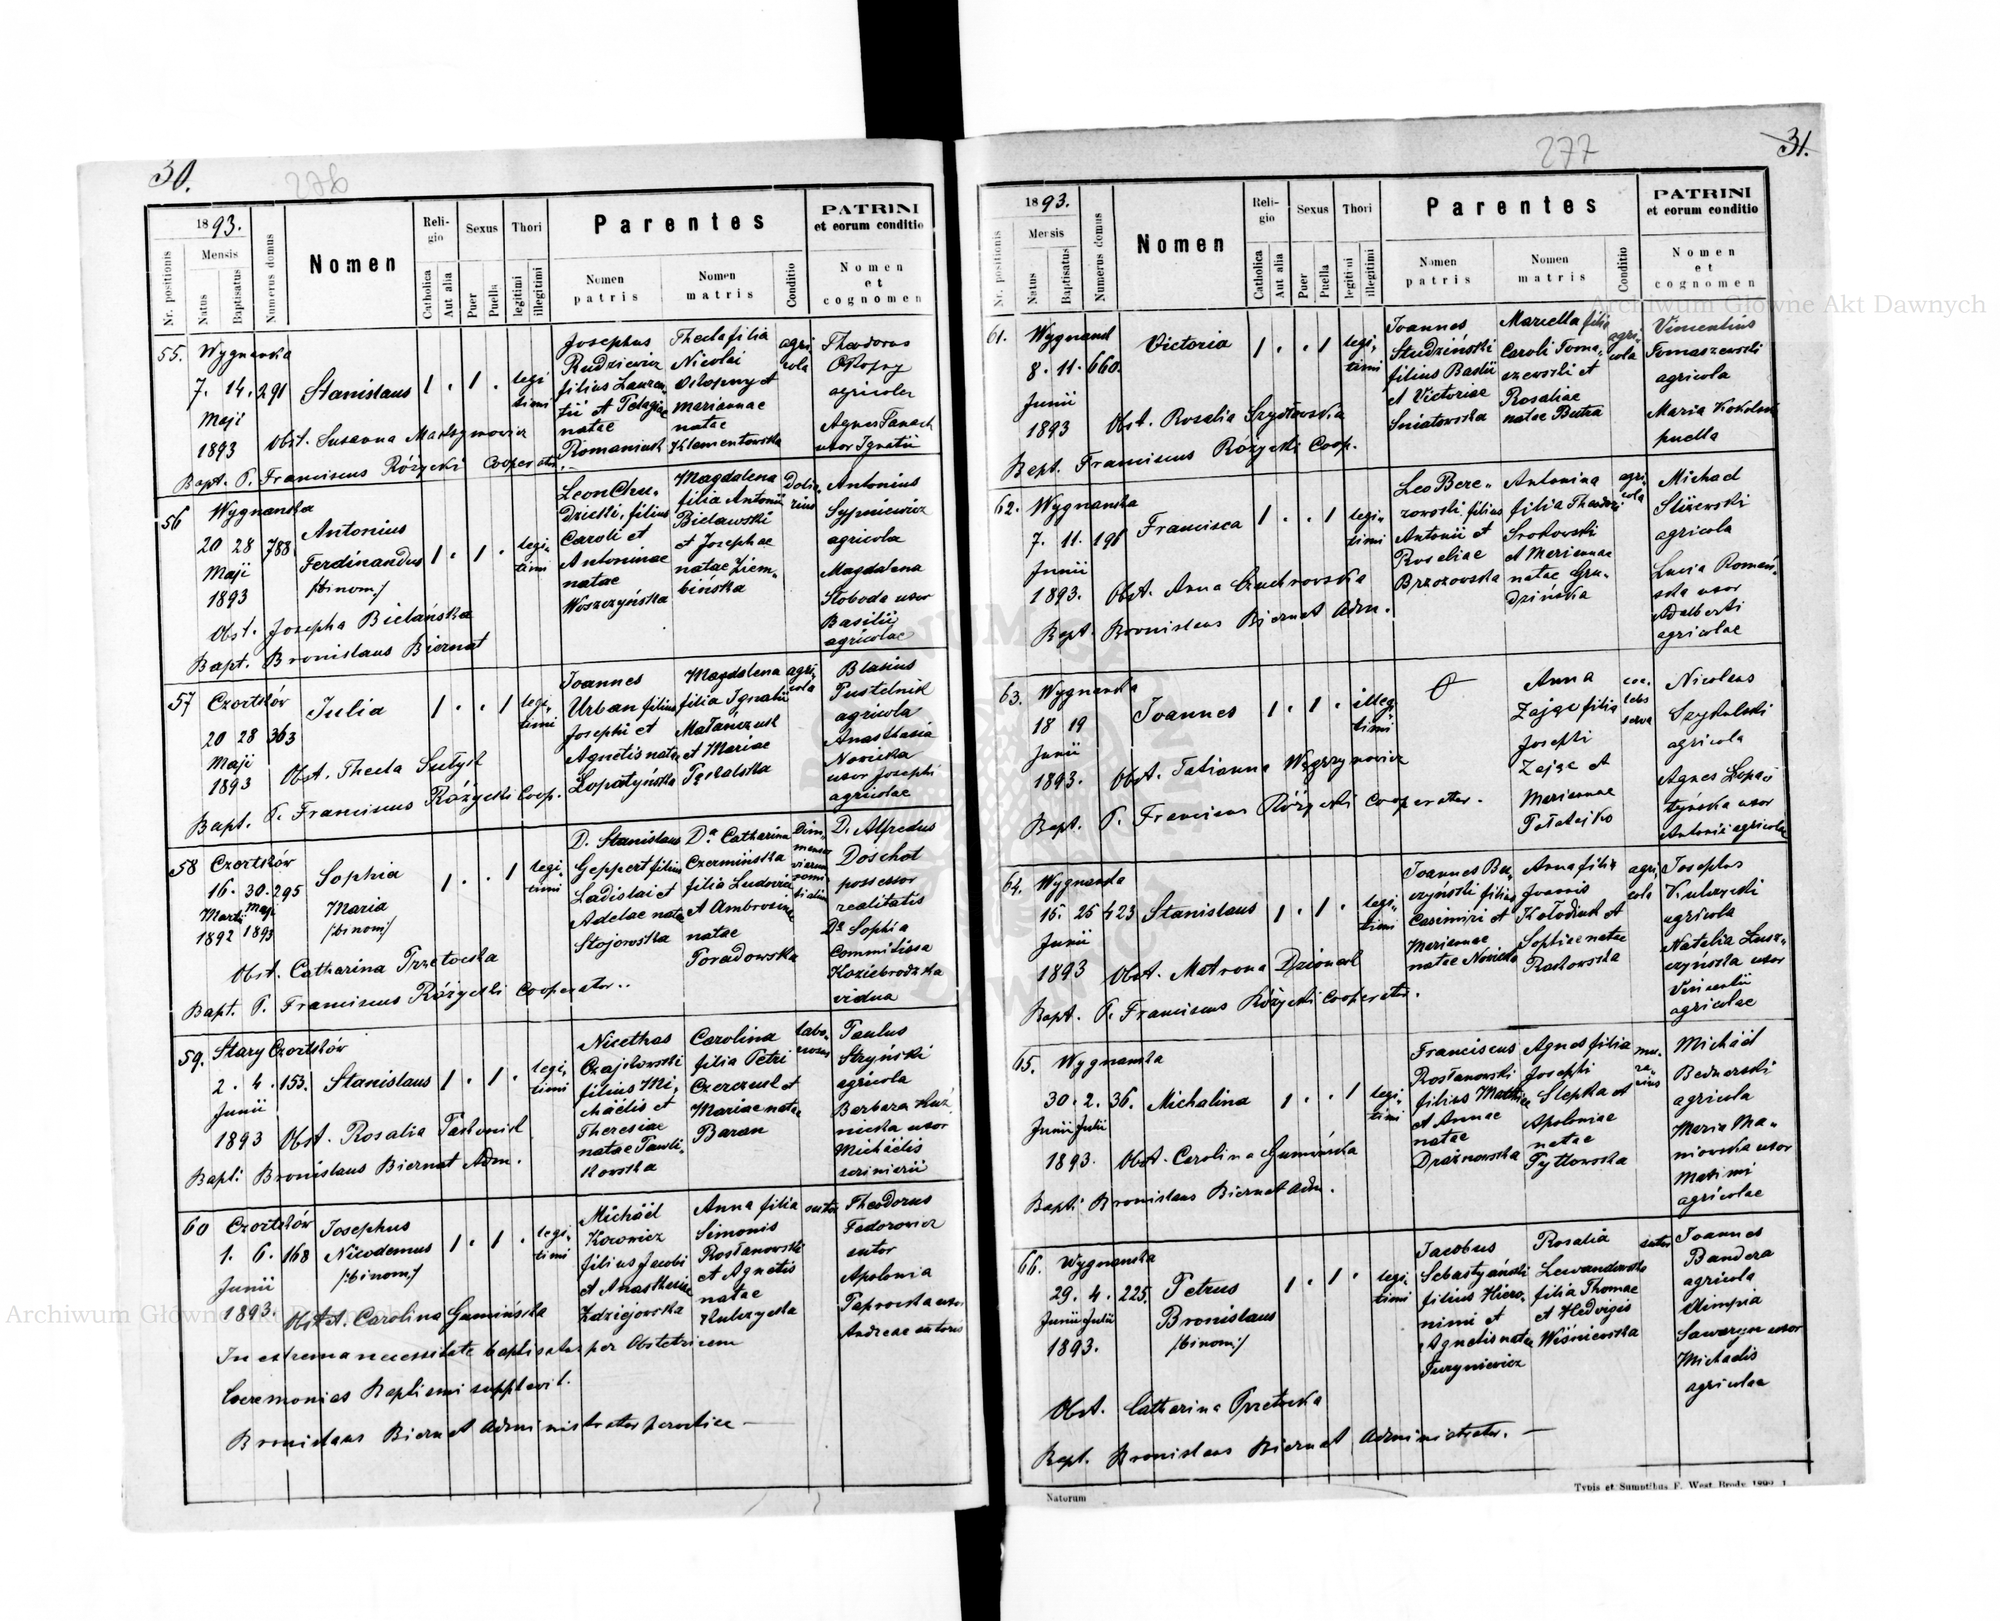 30.
276
1893.
Mensis
Nr. positionis
Natus
Baptisatus
Numerus domus
Nomen
Religio
Catholica
Aut alia
Sexus
Puer
Puella
Thori
legitimi
illegitimi
Parentes
Nomen patris
Nomen matris
Conditio
PATRINI
et eorum conditio
Nomen
et
cognomen
55.
Wygnanka
7. 14. 291
Maji
1893
Stanislaus
1 . 1 .
legi
timi
Josephus
Rudziewicz
filius Lauren
tii et Pelagiae
natae
Romaniuk
Thecla filia
Nicolai
Oskopny et
Mariannae
natae
Klamentowska
agri
cola
Theodorus
Oskopny
agricola
Agnes Panach
uxor Ignatii
Obst. Susanna Martynowicz
Bapt. P. Franciscus Różycki Cooperator.
56
Wygnanka
20 28 788
Maji
1893
Antonius
Ferdinandus
/:binom:/
1 . 1 .
legi-
timi
Leon Chu-
dzicki, filius
Caroli et
Antoninae
natae
Woszczyńska
Magdalena
filia Antonii
Bielawski
et Josephae
natae Ziem-
bińska
Dolia-
rius
Antonius
Sypniewicz
agricola
Magdalena
Słoboda uxor
Basilii
agricolae
Obst. Josepha Bielańska
Bapt. Bronislaus Biernat
57
Czortków
20 28 363
Maji
1893
Julia
1 . . 1
legi-
timi
Joannes
Urban filius
Josephi et
Agnetis natae
Łopatyńska
Magdalena
filia Ignatii
Matańczuk
et Mariae
agri-
cola
Blasius
Pustelnik
agricola
Anasthasia
Nowicka
uxor Josephi
agricolae
Obst. Thecla
Bapt. P. Franciscus Różycki Coop.
58
Czortków
16. 30. 295
Martii Maji
1892 1893
Sophia
Maria
/:binom:/
1 . . 1
legi-
timi
D. Stanislaus
Geppert filius
Ladislai et
Adelae natae
Stojowska
Da Catharina
Czermińska
filia Ludovici
et Ambrosinae
natae
Poradowska
D. Alfredus
Doschot
possessor
realitatis
Da Sophia
Committissa
Koziebrodzka
vidua
Obst. Catharina Przetocka
Bapt. P. Franciscus Różycki Cooperator.
59.
Stary Czortków
2. 4. 153.
Junii
1893
Stanislaus
1 . 1 .
legi-
timi
Nicethas
Czajkowski
filius Mi-
chäelis et
Theresiae
natae Pawli-
kowska
Carolina
filia Petri
Czerczuk et
Mariae natae
Baran
Paulus
Stryński
agricola
Barbara Kuź-
nicka uxor
Michäelis
scrinierii
Obst. Rosalia Pastornik
Bapt: Bronislaus Biernat Adm.
60
Czortków
1. 6. 168
Junii
1893.
Josephus
Nicodemus
/:binom:/
1 . 1 .
legi-
timi
Michäel
Korowicz
filius Jacobi
et Anastasiae
Zdziejowska
Anna filia
Simonis
Rosłanowski
et Agnetis
natae
Kulczycka
sutor
Theodorus
Fedorowicz
sutor
Apolonia
Paprocka uxor
Andreae sutoris
Obst. Carolina Gumińska
In extrema necessitate baptisatus per Obstetricem
Ceremonias Baptismi supplevit.
Bronislaus Biernat Administrator parochiae
31.
277
1893.
Mensis
Nr. positionis
Natus
Baptisatus
Numerus domus
Nomen
Religio
Catholica
Aut alia
Sexus
Puer
Puella
Thori
legitimi
illegitimi
Parentes
Nomen patris
Nomen matris
Conditio
PATRINI
et eorum conditio
Nomen
et
cognomen
61.
Wygnank
8. 11. 660.
Junii
1893
Victoria
1 . . 1
legi-
timi
Joannes
Studziński
filius Basilii
et Victoriae
Śniatowska
Marcella filia
Caroli Toma-
szewski et
Rosaliae
natae Butra
agri-
cola
Vincentius
Tomaszewski
agricola
Maria
puella
Obst. Rosalia Szydłowska
Bapt. Franciscus Różycki Coop.
62.
Wygnanka
7. 11. 191
Junii
1893.
Francisca
1 . . 1
legi-
timi
Leo Bere-
zowski filius
Antonii et
Rosaliae
Brzozowska
Antonina
filia Theodori
Srokowski
et Mariannae
natae Gru-
dzińska
agri
cola
Michael
Śliżewski
agricola
Lucia Román-
ska uxor
Adalberti
agricolae
Obst. Anna Czuchrowska
Bapt. Bronislaus Biernat Adm.
63.
Wygnanka
18 19
Junii
1893.
Joannes
1 . 1 .
illegi-
timi
Anna
Zając filia
Josephi
Zając et
Mariannae
Pałatajko
coe-
lebs
serva
Nicolaus
Szykulski
agricola
Agnes Łopa-
tyńska uxor
Antonii agricolae
Obst. Tatianna Węgrzynowicz
Bapt. P. Franciscus Różycki Cooperator.
64.
Wygnanka
15. 25 423
Junii
1893
Stanislaus
1 . 1 .
legi-
timi
Joannes Bu-
czyński filius
Casimiri et
Mariannae
natae Nowicka
Anna filia
Joannis
Kołodiuk et
Sophiae natae
Rakowska
agri
cola
Josephus
Kulczycki
agricola
Natalia Łusz-
czyńska uxor
Vincentii
agricolae
Obst. Matrona
Bapt. P. Franciscus Różycki Cooperator.
65.
Wygnanka
30. 2. 36.
Junii Julii
1893.
Michalina
1 . . 1
legi-
timi
Franciscus
Rosłanowski
filius Mathiae
et Annae
natae
Drażnowska
Agnes filia
Josephi
Slepka et
Apoloniae
natae
Pytlowska
mu-
ra-
rius
Michäel
Bednarski
agricola
Maria Ma-
niowska uxor
Maximi
agricolae
Obst. Carolina Gumińska
Bapt: Bronislaus Biernat Adm.
66.
Wygnanka
29. 4. 225.
Junii Julii
1893.
Petrus
Bronislaus
/:binom:/
1 . 1 .
legi-
timi
Jacobus
Sebastyański
filius Hiero-
nimi et
Agnetis natae
Turyniewicz
Rosalia
Lewandowska
filia Thomae
et Hedvigis
Wiśniewska
sutor
Joannes
Bandera
agricola
Olimpia
Sawaryn uxor
Michaelis
agricolae
Obst. Catharina Przetocka
Bapt. Bronislaus Biernat Administrator.
Natorum
Typis et Sumptibus F. West Brody
Archiwum Główne Akt Dawnych
Archiwum Główne Akt Dawnych